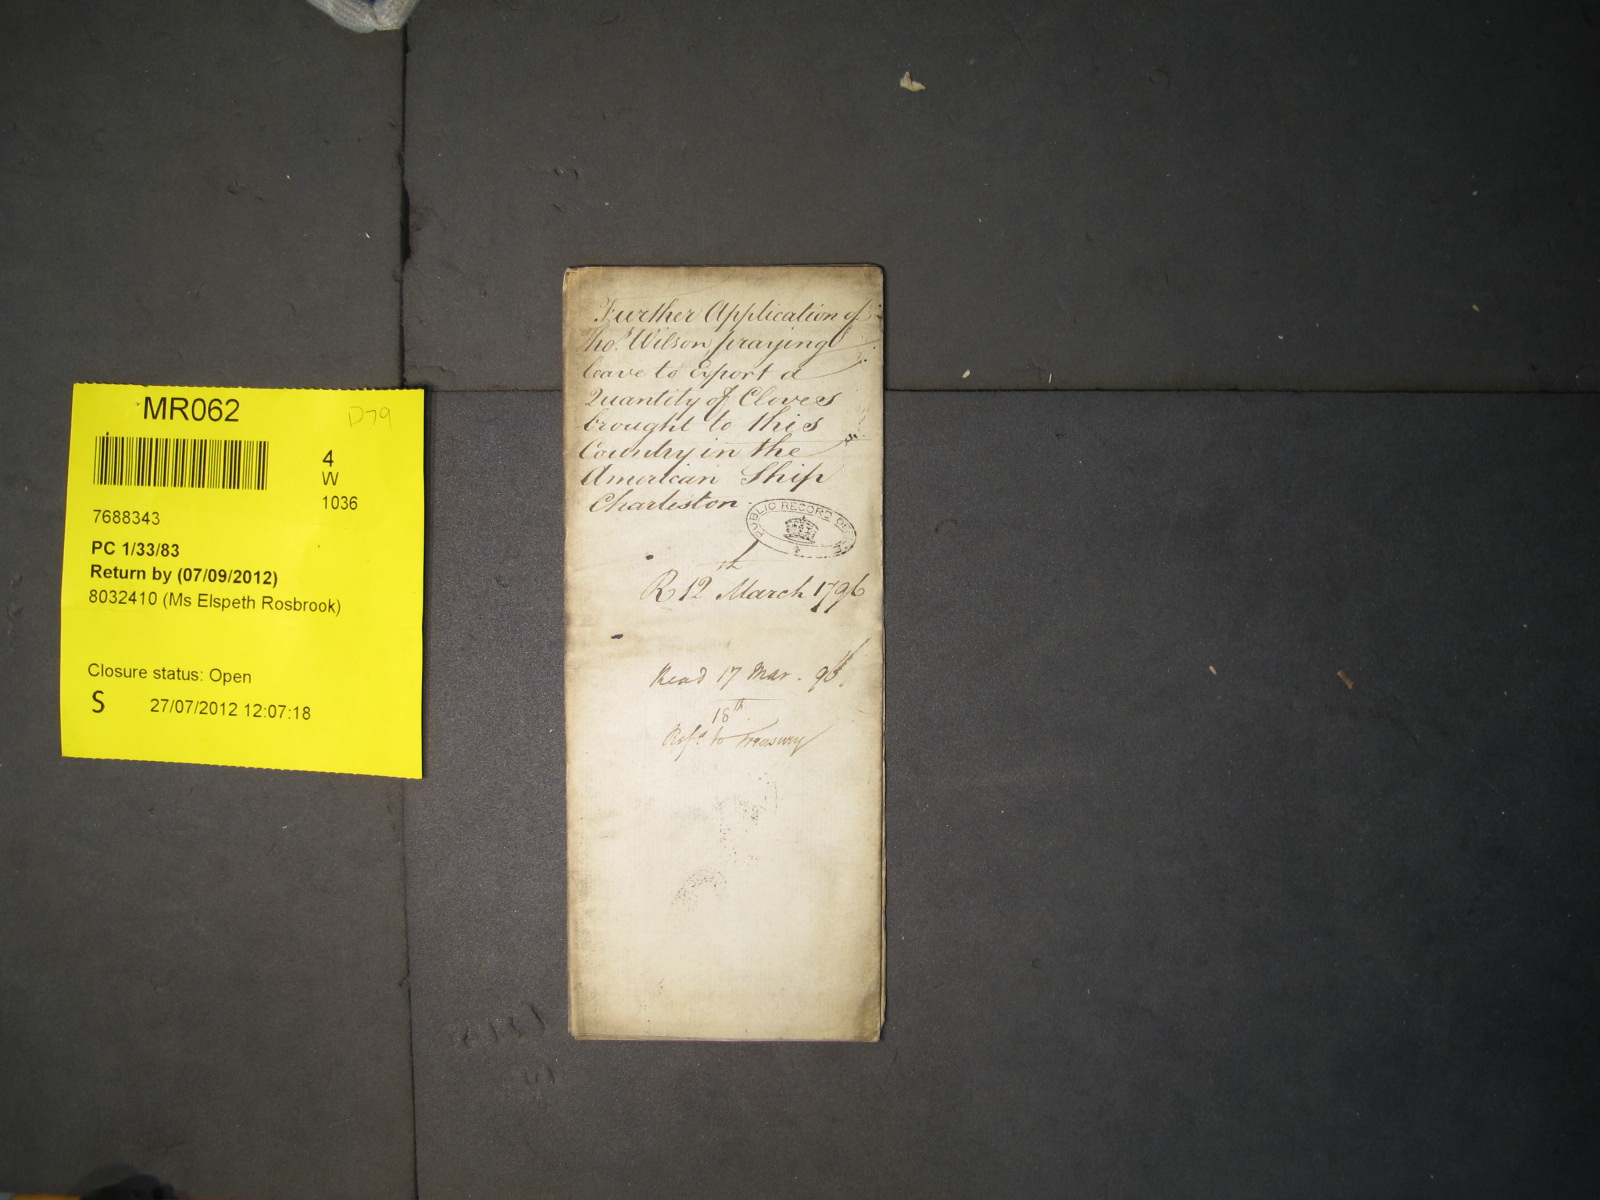 MR062
D79
4
W
1036
7688343
PC 1/33/83
Return by (07/09/2012)
8032410 (Ms Elspeth Rosbrook)
Closure status: Open
S 27/07/2012 12:07:18
Further Application of
Thos. Wilson praying
leave to Export a
Quantity of Cloves
brought to this
Country in the
American Ship
Charleston
PUBLIC RECORD OFFICE
R 12th March 1796
Read 17 Mar. 96.
18th
Refd. to Treasury